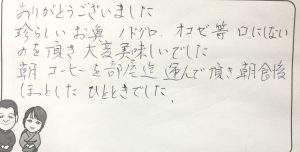 ありがとうございました
珍らしいお魚 ノドグロ、オコゼ等 口にしない
のを頂き大変美味しいでした
朝 コーヒーを部屋迄 運んで頂き朝食後
ほっとした ひとときでした、